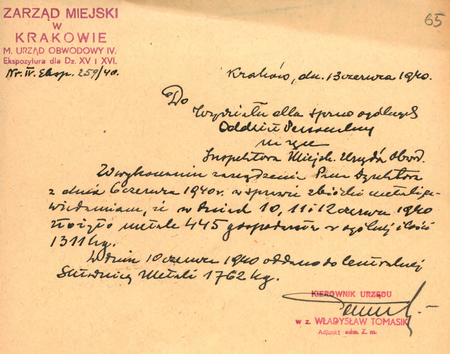 ZARZĄD MIEJSKI
W
KRAKOWIE
M. URZĄD OBWODOWY IV.
Ekspozytura dla Dz. XV i XVI.
Nr. IV. Eksp. 259/40.
65
Kraków, dn. 13 czerwca 1940.
Do
Wydziału dla spraw ogólnych
Oddział Personalny
Inspektora Miejsk. Urzędu Obwod.
W wykonaniu zarządzenia Pana Dyrektora
z dnia 6 czerwca 1940 r. w sprawie zbiórki metali za-
wiadamiam, iż w dniach 10, 11 i 12 czerwca 1940
złożyło metale 445 gospodarzy w ogólnej ilości
1311 kg.
W dniu 10 czerwca 1940 oddano do Centralnej
Składnicy Metali 1762 kg.
KIEROWNIK URZĘDU
w z. WŁADYSŁAW TOMASIK
Adjunkt adm. Z. m.